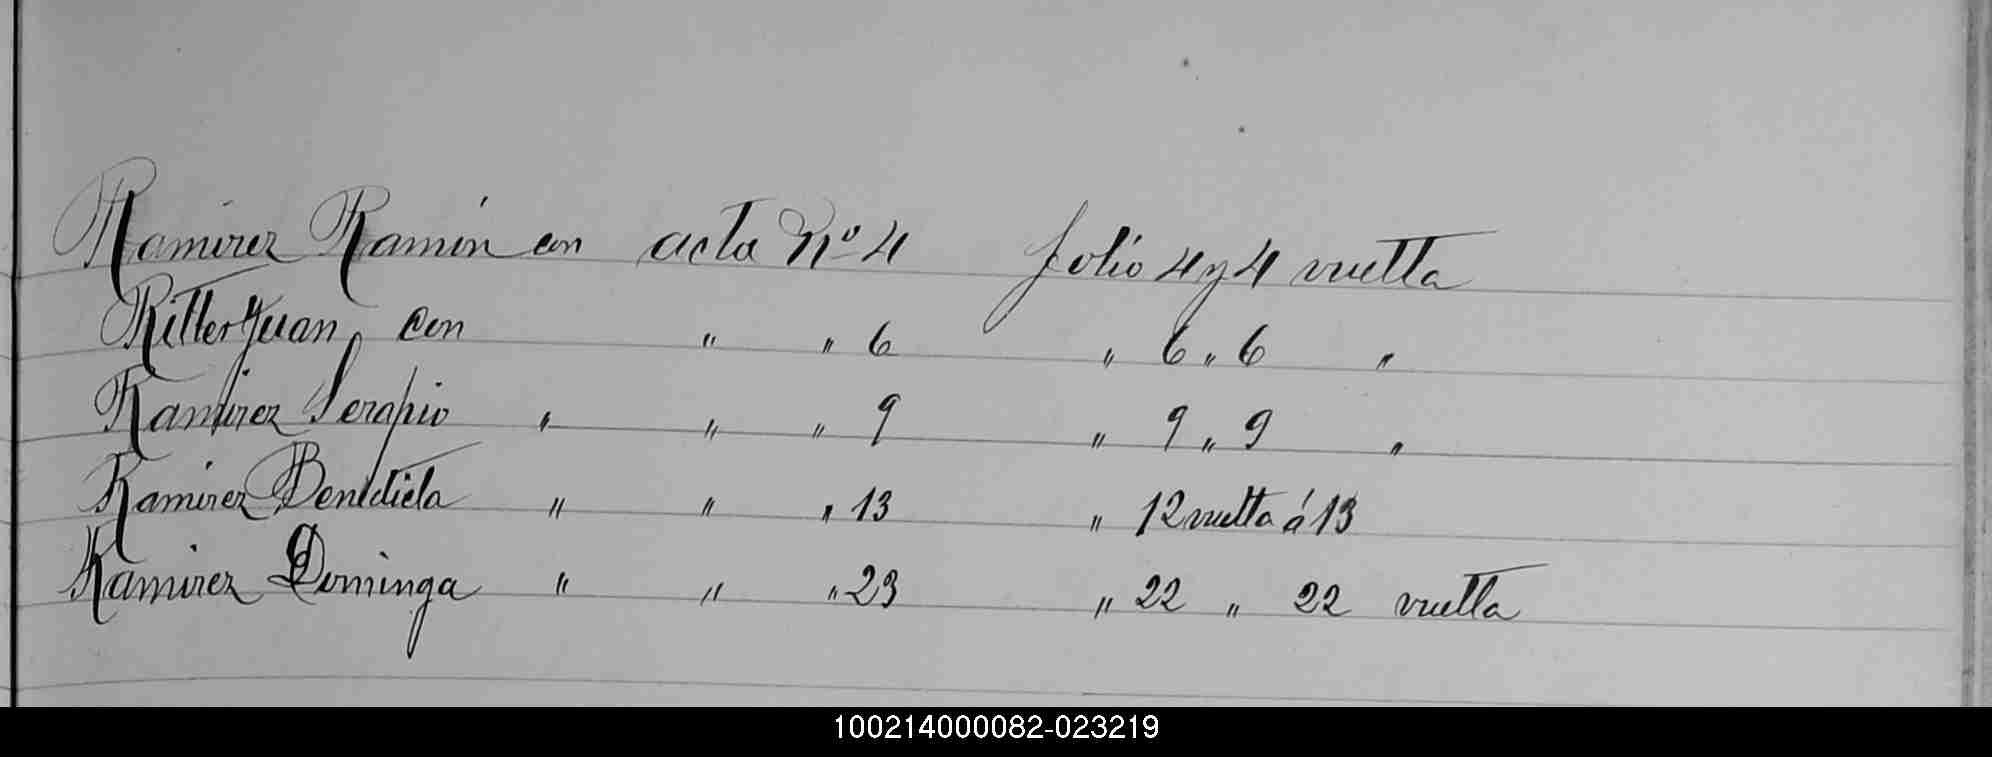 Ramirez Ramón con acta Nº 4 folio 4 y 4 vuelta
Ritter Juan con " " 6 " 6 " 6 "
Ramirez Serapio " " " 9 " 9 " 9 "
Ramirez Benedicta " " " 13 " 12 vuelta á 13
Ramirez Dominga " " " 23 " 22 " 22 vuelta
100214000082-023219